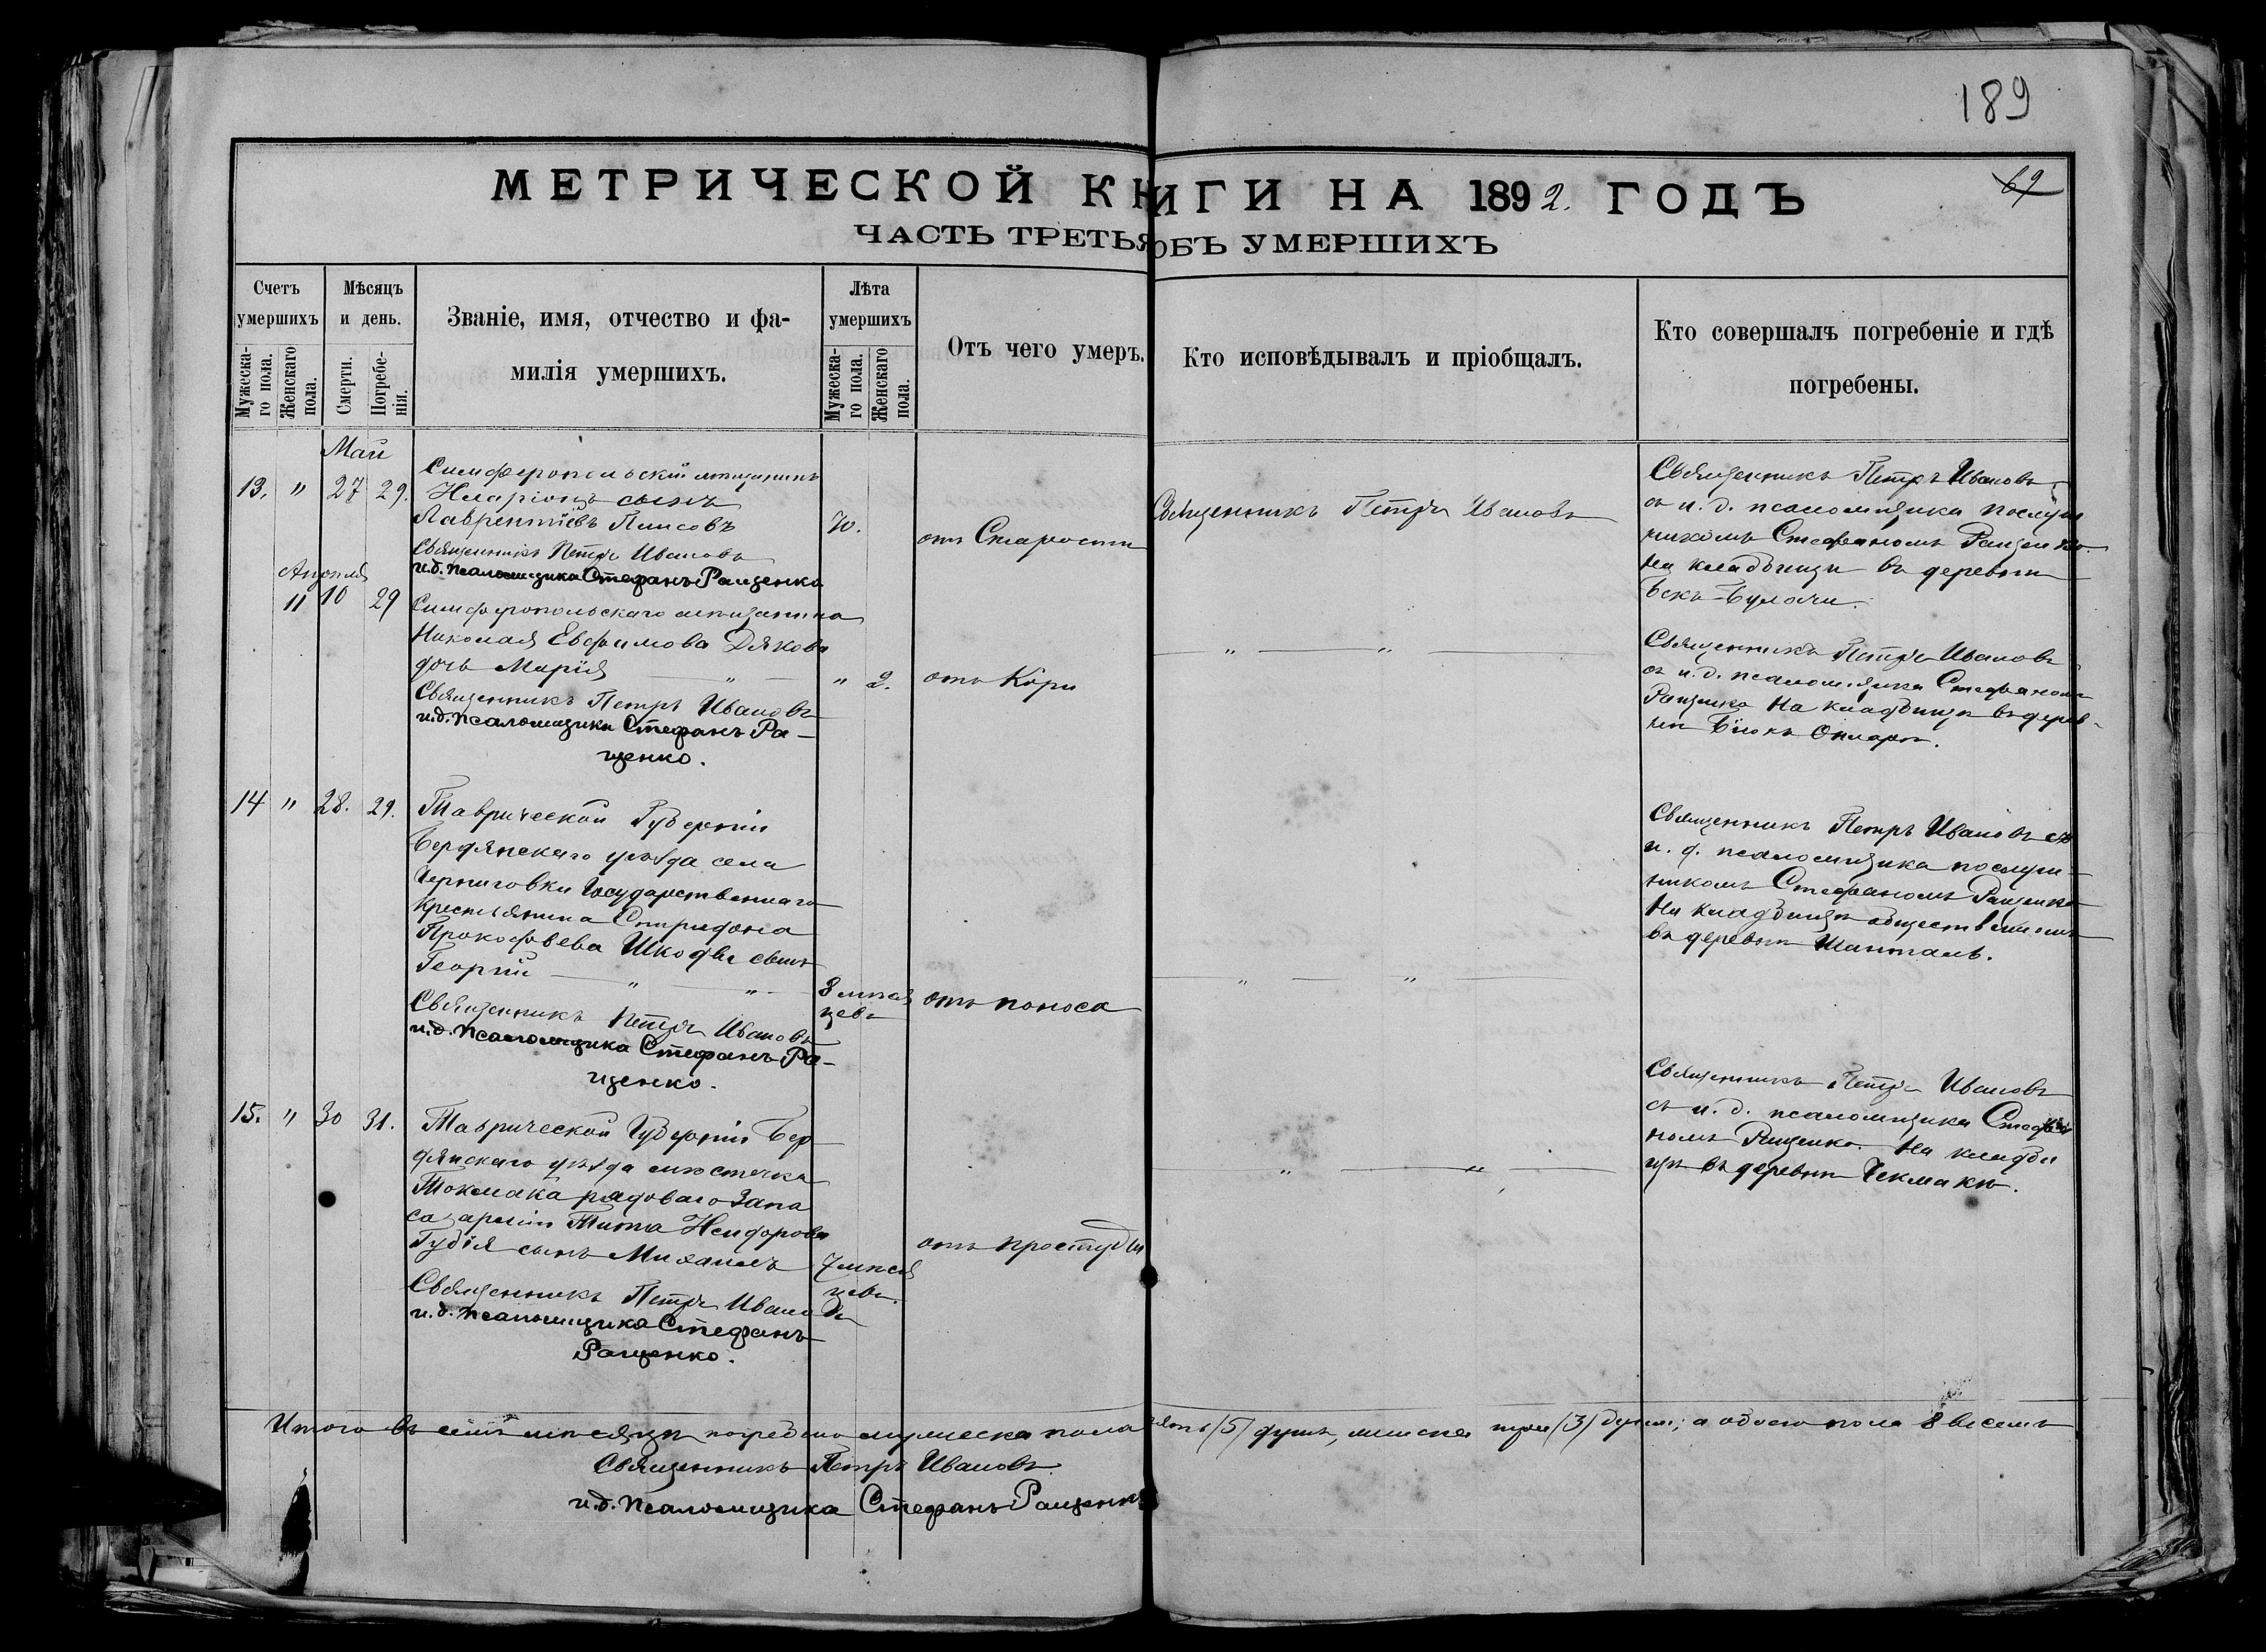 189
МЕТРИЧЕСКОЙ КНИГИ НА 1892. ГОДЪ
69
ЧАСТЬ ТРЕТЬЯ ОБЪ УМЕРШИХЪ
Счетъ умершихъ
Мужеска-
го пола.
Женскаго
пола.
Мѣсяцъ
и день.
Смерти.
Погребе-
нія.
Званіе, имя, отчество и фа-
милія умершихъ.
Лѣта
умершихъ
Мужеска-
го пола.
Женскаго
пола.
Отъ чего умеръ.
Кто исповѣдывалъ и пріобщалъ.
Кто совершалъ погребеніе и гдѣ
погребены.
Май
13. " 27 29.
Симферопольскій мѣщанинъ
Иларіонъ сынъ
Лаврентіевъ
Священникъ Петръ Ивановъ
и.д. псаломщика Стефанъ Ращенко
70.
отъ Старости
Священникъ Петръ Ивановъ
Священникъ Петръ Ивановъ
съ и. д. псаломщика послуш
никомъ Стефаномъ Ращенко.
На кладбищѣ въ деревнѣ
Бекъ-Булачи.
Апрѣля
11 10 29
Симферопольскаго мѣщанина
Николая Евфимова Дякова
дочь Марія "
Священникъ Петръ Ивановъ
и.д. псаломщика Стефанъ Ра-
щенко.
" 2.
отъ Кори
" "
Священникъ Петръ Ивановъ
съ и. д. псаломщика Стефаномъ
Ращенко На кладбищѣ въ дерев-
нѣ Біюкъ Онларъ.
14 " 28. 29.
Таврической Губерніи
Бердянскаго уѣзда села
Черниговки Государственнаго
Крестьянина Спиридона
Прокофьева Шкоды сынъ
Георгій " "
Священникъ Петръ Ивановъ
и.д. псаломщика Стефанъ Ра-
щенко.
8 мѣся
цевъ
отъ поноса
" "
Священникъ Петръ Ивановъ съ
и. д. псаломщика послуш-
никомъ Стефаномъ Ращенко
На кладбищѣ общественномъ
въ деревнѣ Шанталъ.
15. " 30 31.
Таврической Губерніи Бер
дянскаго уѣзда мѣстечка
Токмака рядоваго Запа
са арміи Тита Исидорова
Губія сынъ Михаилъ
Священникъ Петръ Ивановъ
и.д. псаломщика Стефанъ
Ращенко.
7 мѣся
цевъ.
отъ простуды
" "
Священникъ Петръ Ивановъ
съ и. д. псаломщика Стефа
номъ Ращенко. На кладби
щѣ въ деревнѣ Чекмакъ.
Итого въ семъ мѣсяцѣ погребено мужеска пола пять (5) душъ, женска три (3) души; а обоего пола 8 восемь
Священникъ Петръ Ивановъ.
и.д. псаломщика Стефанъ Ращенко